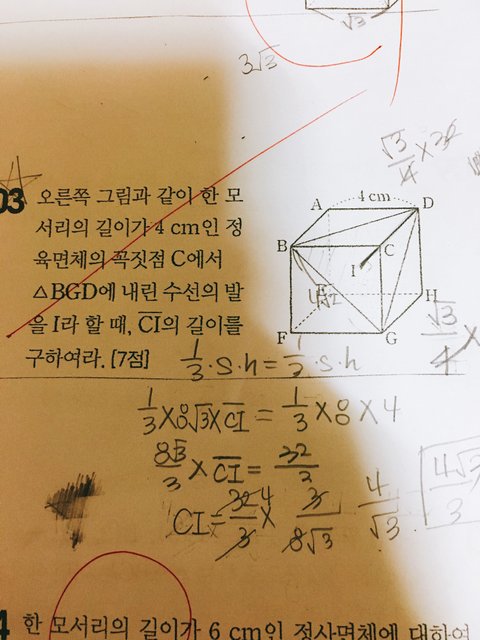 √3
3√3
√3/4 × 
03 오른쪽 그림과 같이 한 모
서리의 길이가 4 cm인 정
육면체의 꼭짓점 C에서
△BGD에 내린 수선의 발
을 I라 할 때, C͞I의 길이를
구하여라. [7점]
A 4 cm D
B C
I
E H
F G
4√2
√3/4 ×
1/3·S·h = 1/3·S·h
1/3 × 8√3 × C͞I = 1/3 × 8 × 4
8√3/3 × C͞I = 32/3
CI = 32/3 × 3/8√3 4/√3 4√3/3
4
4 한 모서리의 길이가 6 cm인 정사면체에 대하여